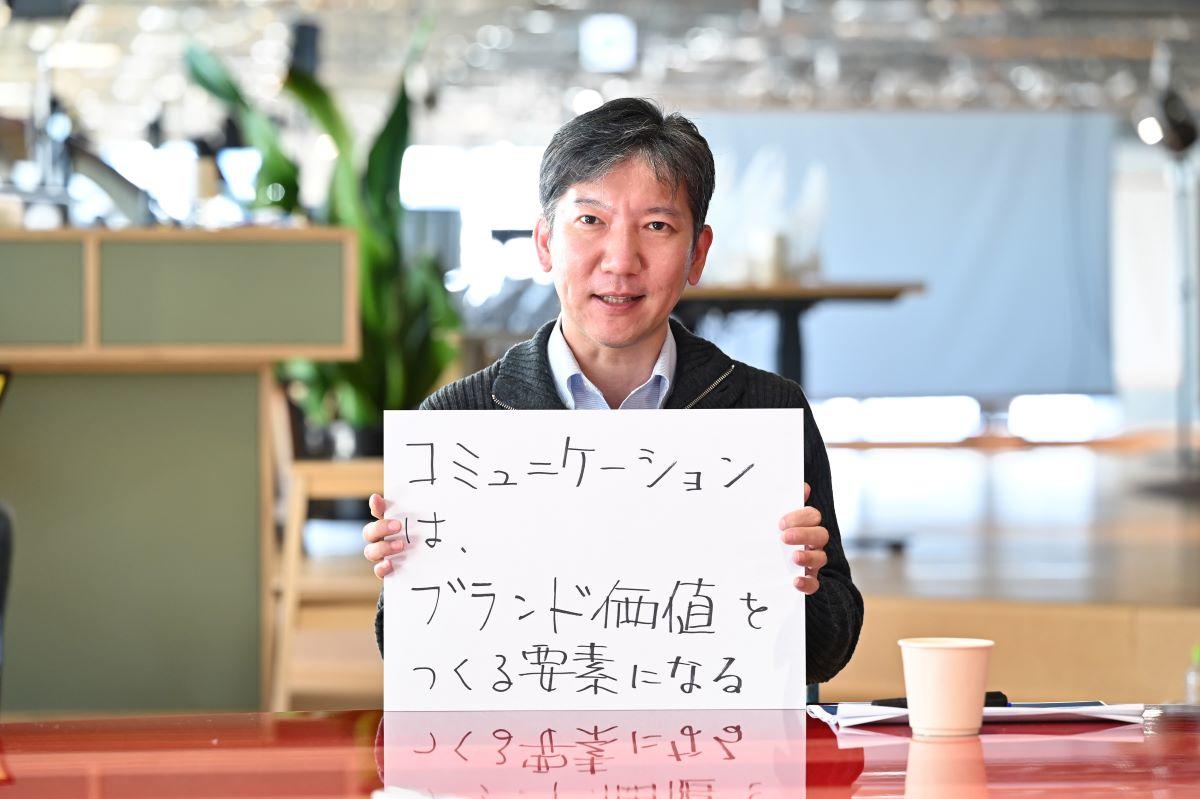 コミュニケーション
は、
ブランド価値を
つくる要素になる